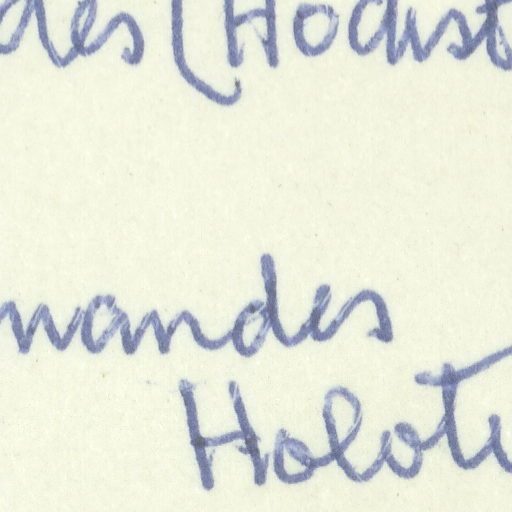 des (Hochst
wandes
Holoty